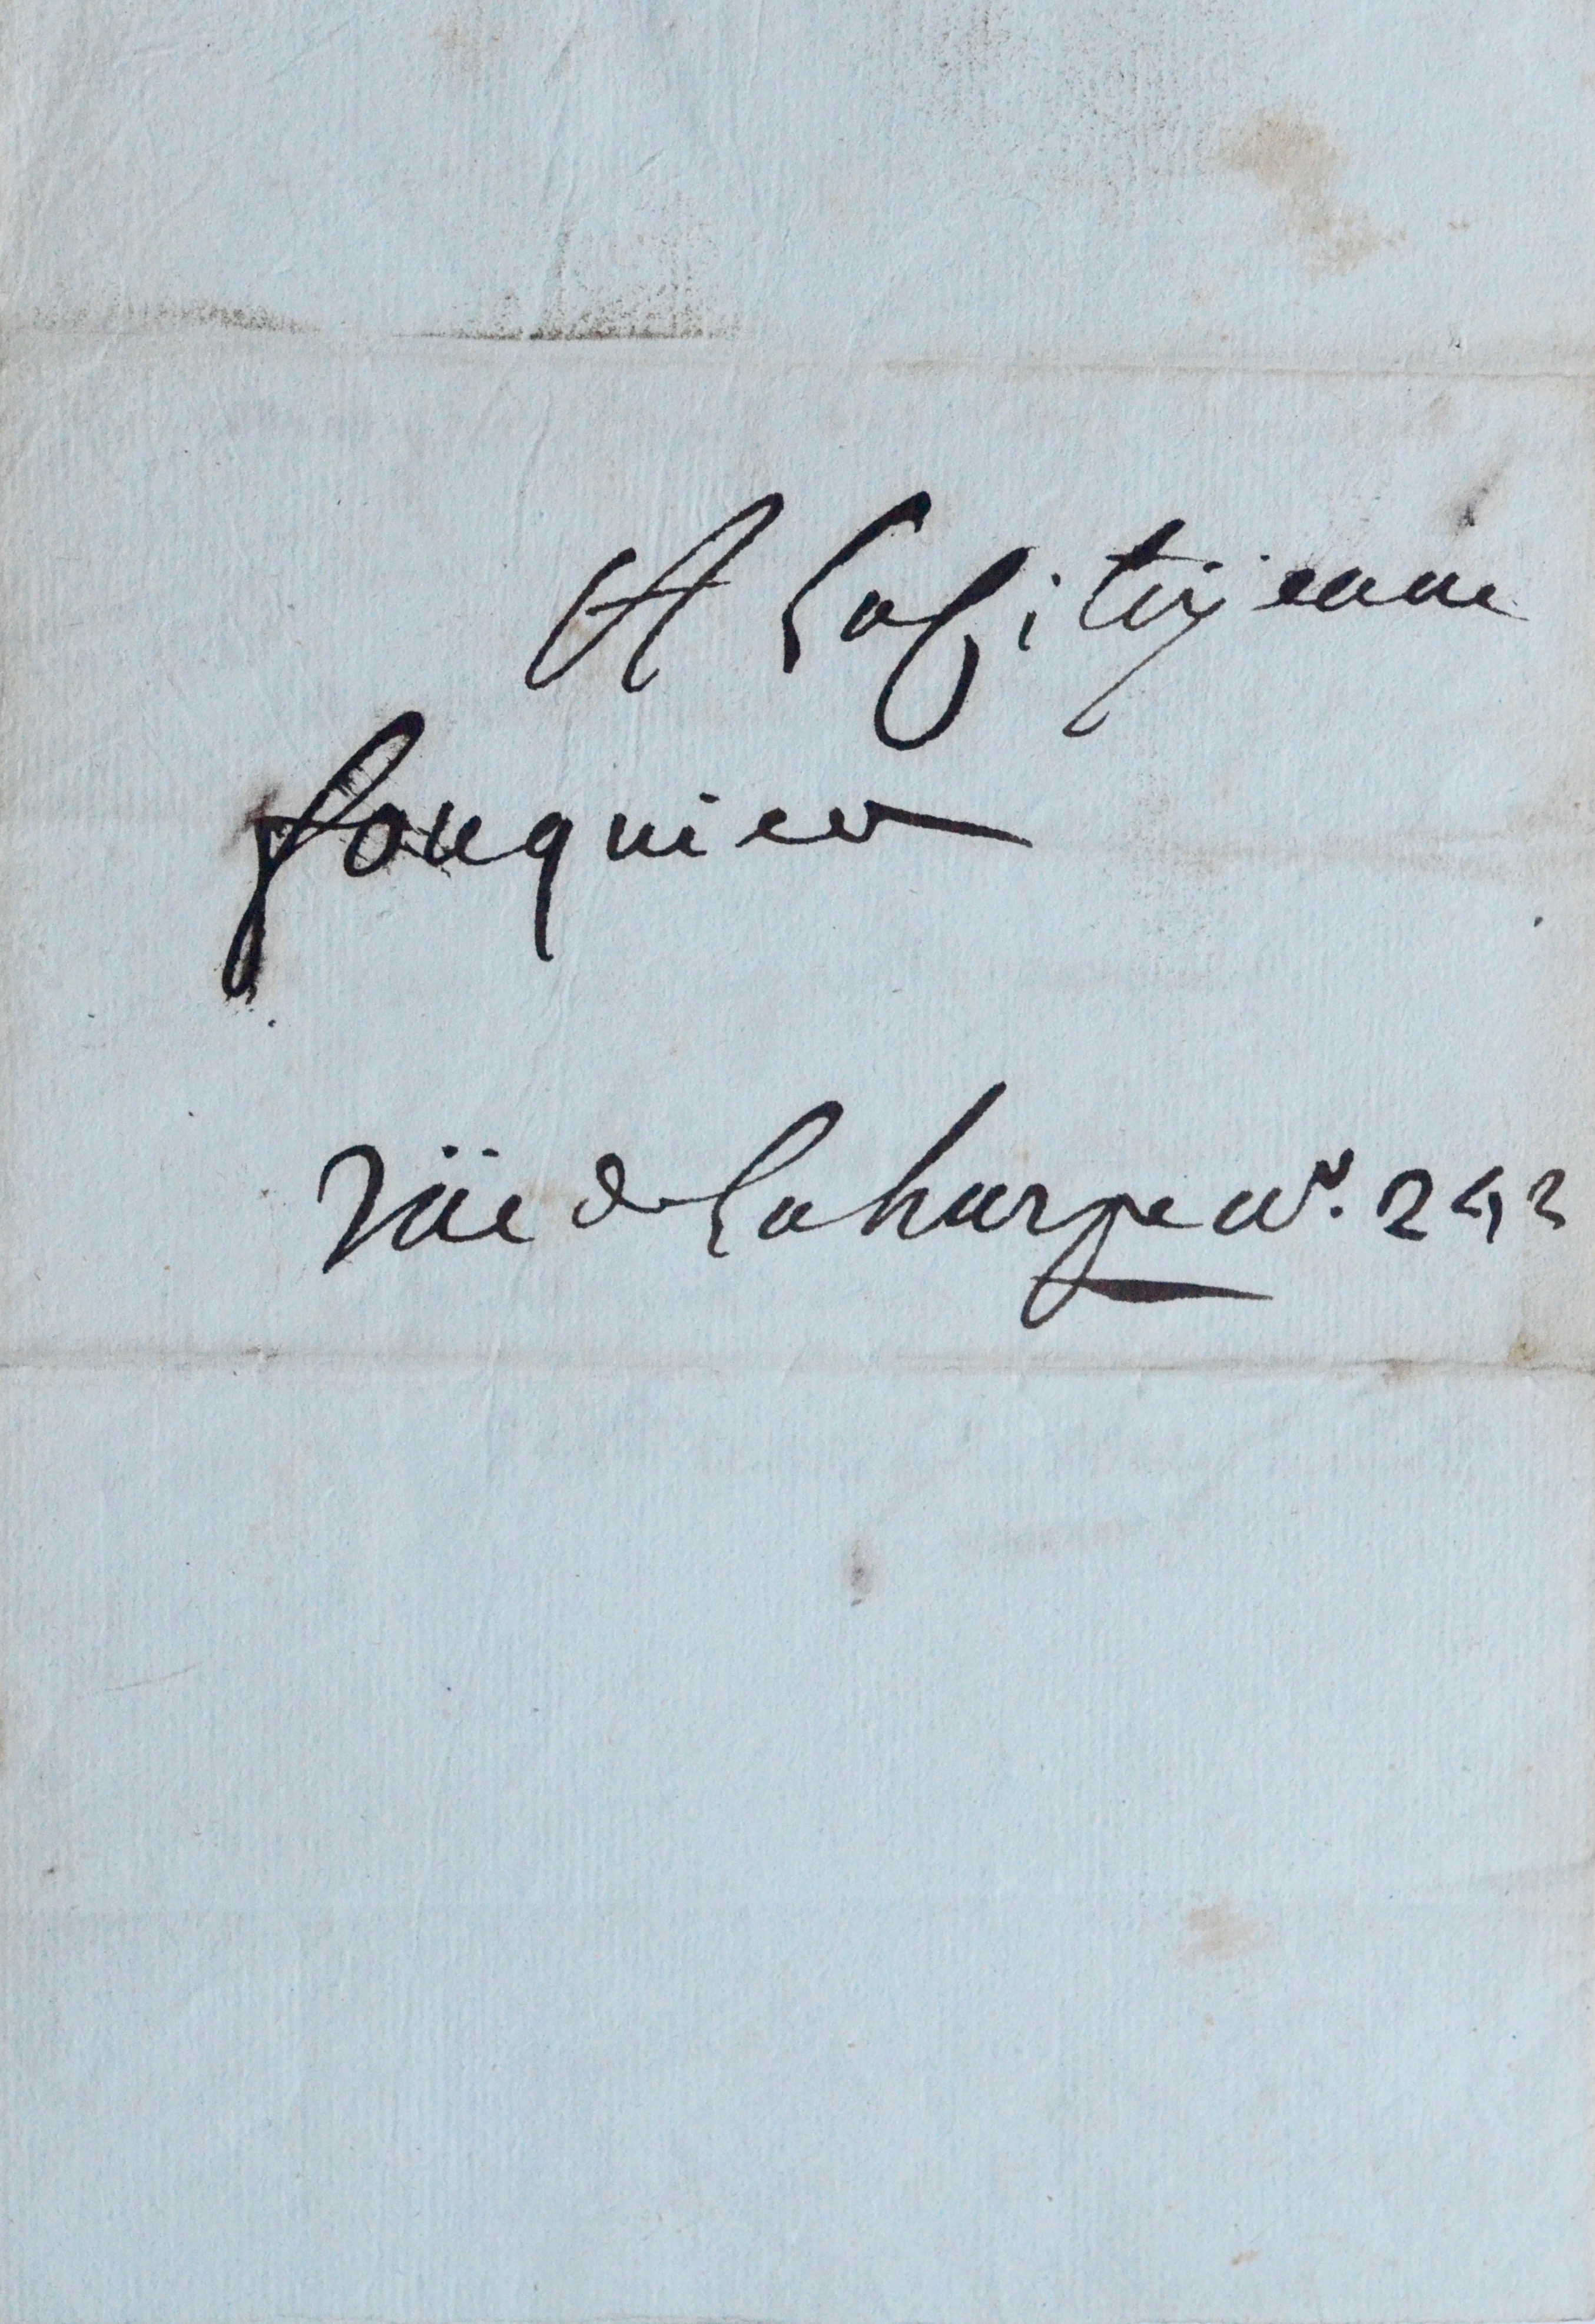 A la Citöyenne
fouquier
Rüe de la harpe n°. 242